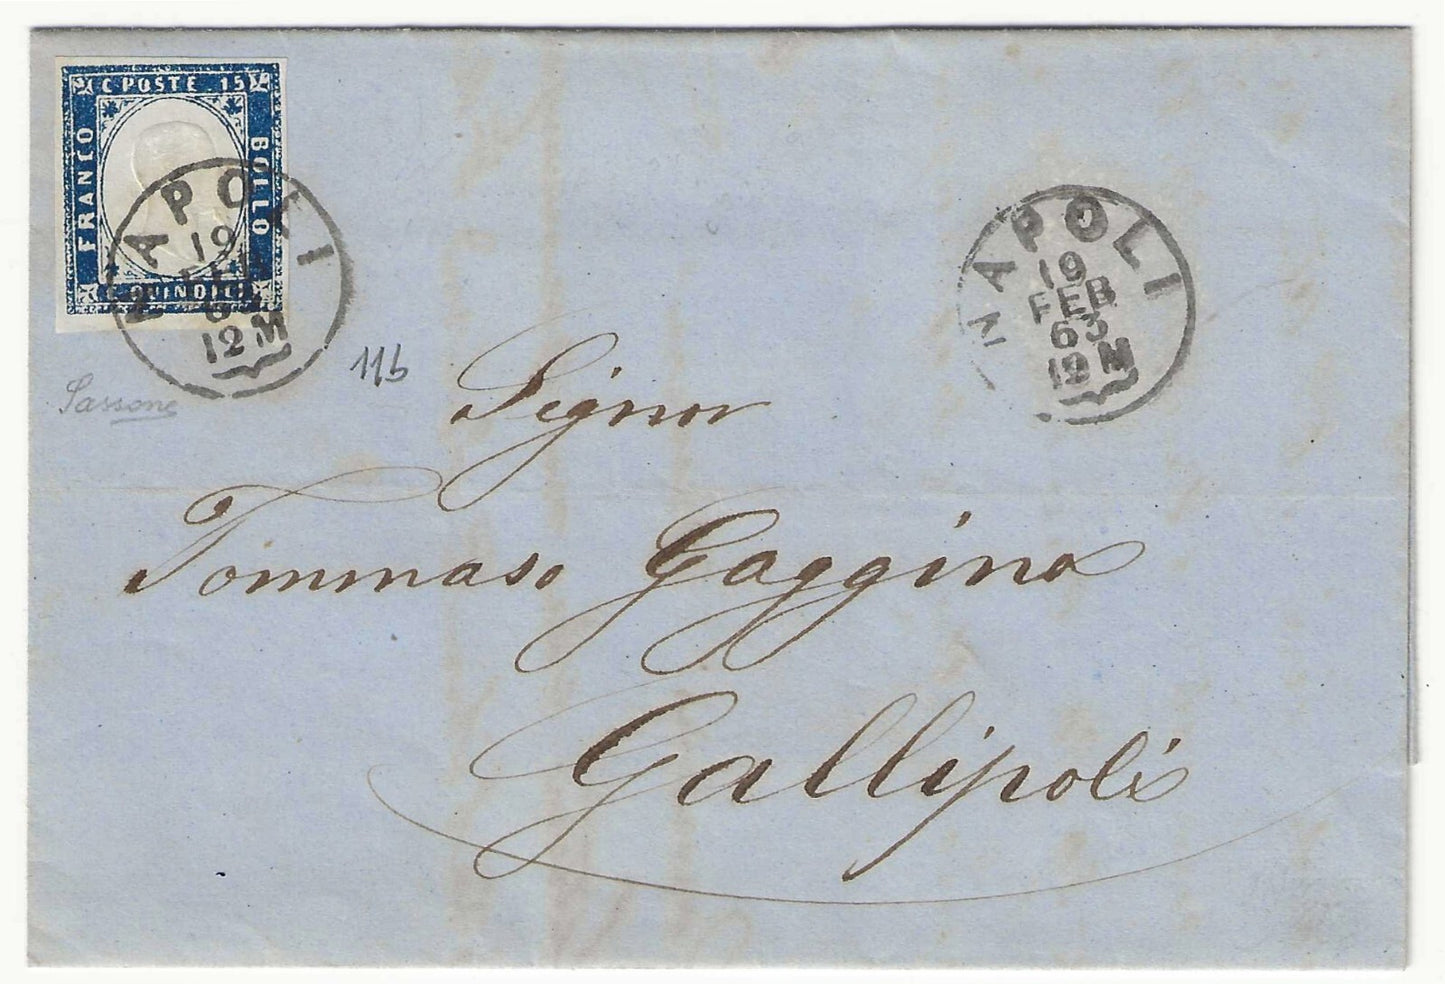 C POSTE 15
FRANCO
BOLLO
C. QUINDICI
NAPOLI
19
FEB
63
12 M
NAPOLI
19
FEB
63
12 M
11b
Sassone
Signor
Tommaso Gaggino
Gallipoli